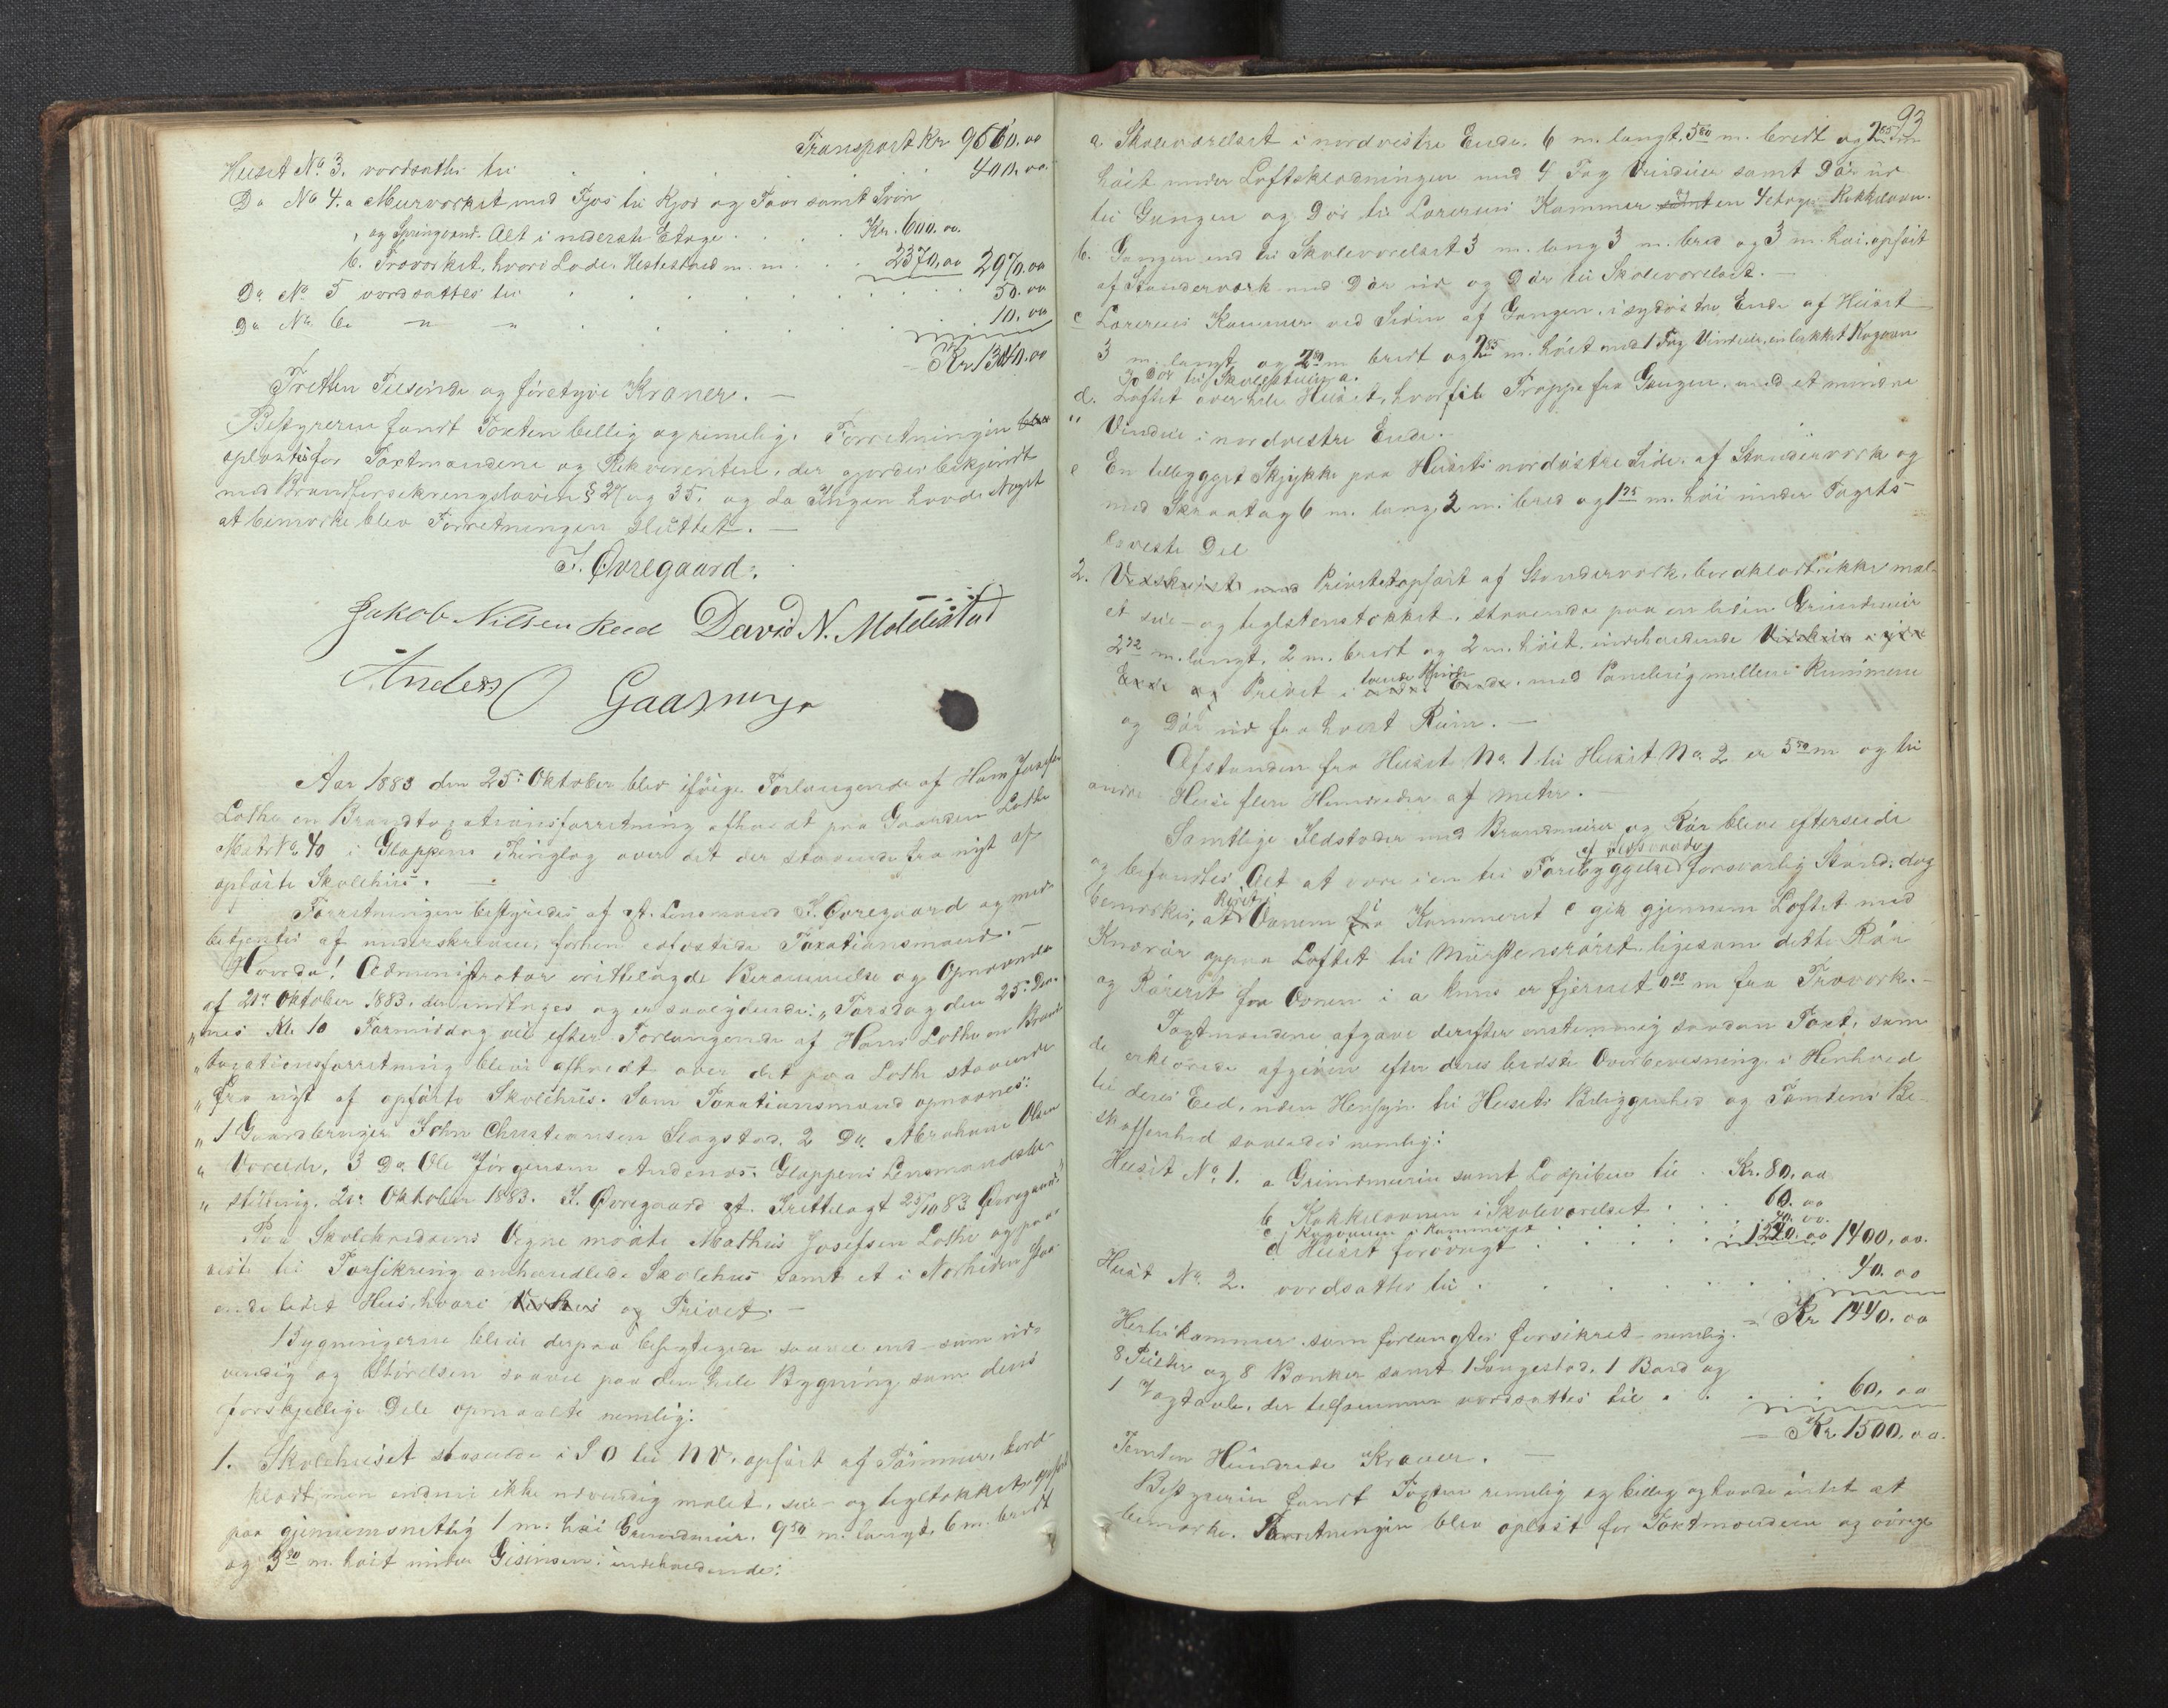 Transport Kr. 9610.00
Huset No 3. værdsattes til . . . 400.00
Do No 4. a Murværket med Fjøs til Kjør og Faar samt Sviin
og Springvand. Alt i nederste Etage . . . Kr. 600.00.
b. Træværket, hvori Lade, Hestestald m. m. . . 2370.00 2970.00
Do No 5 værdsattes til . . . 50.00
Do No 6. " " . . . 10.00
= Kr. 13040.00
Tretten Tusinde og føretyve Kroner. —
Bestyreren fandt Taxten billig og rimelig. Forretningen
oplæstes for Taxtmændene og Rekvirenten, der gjordes bekjendt
med Brandforsikringsloven § 29 og 35. og da Ingen havde Noget
at bemærke blev Forretningen sluttet. —
J. Øvregaard.
Jakob Nilsen Reed David N. Moldestad
Anders O Gaasmyr
Aar 1883 den 25: Oktober blev ifølge Forlangende af Hans Josefsen
Lothe en Brandtaxationsforretning afholdt paa Gaarden Lothe
Matr No 40 i Gloppens Thinglag over det der staaende fra nyt af
opførte Skolehus. —
Forretningen bestyredes af st. Lensmand J. Øvregaard og med-
betjentes af underskrevne, forhen edfæstede Taxationsmænd. —
Hvorda! Administrator irettelagde Berammelse og Opnævnelse
af 21de Oktober 1883. der indtages og er saalydende: „Torsdag den 25. den-
„nes Kl. 10 Formiddag vil efter Forlangende af Hans Lothe en Brand-
„taxationsforretning blive afholdt over det paa Lothe staaende
„fra nyt af opførte Skolehus. Som Taxationsmænd opnævnes:
„1 Gaardbruger John Christiansen Slagstad, 2 Do. Abraham Olsen
„Vereide, 3 Do Ole Jørgensen Andenæs. Gloppens Lensmands be-
„stilling. 21: Oktober 1883. J. Øvregaard st. Irettelagt 25/10 83 Øvregaard"
Paa Skolekredsens Vegne mødte Mathias Josefsen Lothe og paa-
viste til Forsikring omhandlede Skolehus samt et i Nærheden staa-
ende lidet Hus, hvori Vedskur og Privet. —
Bygningerne bleve derpaa besigtigede saavel ind- som ud-
vendig og Størrelsen saavel paa den hele Bygning som dens
forskjellige Dele opmaalte nemlig:
1. Skolehuset staaende i SO til NV. opført af Tømmer, bord-
klædt, men endnu ikke udvendig malet, sue- og tegltækket, opført
paa gjennemsnitlig 1 m. høi Grundmur. 9 50 m. langt. 6 m. bredt
og 3 20 m. høit under Gesimsen: indeholdende:
93
a. Skoleværelset i nordvestre Ende. 6 m. langt, 5 80 m. bredt og 2 85 m
høit under Loftsklædningen med 4 Fag Vinduer samt Dør ud
til Gangen og Dør til Lærerens Kammer samt en 4 etages Kakkelovn.
b. Gangen ind til Skoleværelset 3 m. lang 3 m. bred og 3 m. høi. opført
af Stenderværk med Dør ud og Dør til Skoleværelset. —
c Lærerens Kammer ved Siden af Gangen, i sydøstre Ende af Huset
3 m. langt og 2 80 m bredt og 2 85 m. høit med 1 Fag Vinduer, en lukket Kogeovn
og Dør til Skolestuen a.
d. Loftet over hele Huset, hvortil Trappe fra Gangen, med et mindre
" Vindue i nordvestre Ende.
e En tilbygget Skjykke paa Husets nordøstre Side, af Stenderværk og
med Skraatag 6 m. lang, 2 m. bred og 1 75 m. høi under Tagets
laveste Del
2. Vedskjul med Privet opført af Stenderværk, bordklædt, ikke mal-
et sue- og teglstenstækket, staaende paa en liden Grundmur
2 72 m. langt. 2 m. bredt og 2 m. høit. indeholdende Vedskur i øvre
Ende og Privet i begge Ender, med Paneling mellem Rummene
og Dør ud fra hvert Rum. —
Afstanden fra Huset No 1 til Huset No 2 er 5 50 m og til
andre Huse flere Hundreder af Meter. —
Samtlige Ildsteder med Brandmurer og Rør bleve efterseede
og befandtes Alt at være i en til Forebyggelse af Ildsvaade forsvarlig Stand; dog
bemærkes, at Røret i Ovnen fra Kammeret c gik gjennem Loftet med
Knærør oppaa Loftet til Murstensrøret ligesom dette Rør
og Røreret fra Ovnen i a kuns er fjernet 0 08 m fra Træværk. —
Taxtmændene afgave derefter enstemmig saadan Taxt, som
de erklærede afgiven efter deres bedste Overbevisning i Henhold
til deres Eed, uden Hensyn til Husets Beliggenhed og Tomtens Be-
skaffenhed saaledes nemlig:
Huset No 1. a Grundmuren samt Loftpiben til . Kr. 80.00
b Kakkelovnen i Skoleværelset . . . 60.00
c Kogovnen i Kammeret . . . 20.00.
d Huset forøvrigt . . . 1240.00 1400.00.
Huset No 2. værdsattes til . . . 40.00
= Kr 1440.00
Hertil kommer som forlangtes forsikret - nemlig:
8 Pulter og 8 Bænker samt 1 Sengested, 1 Bord og
1 Vægtavle, der tilsammen værdsattes til . . . 60.00
= Kr 1500.00.
Femten Hundrede Kroner. —
Bestyreren fandt Taxten rimelig og billig og havde intet at
bemærke. Forretningen blev oplæst for Taxtmændene og øvrige